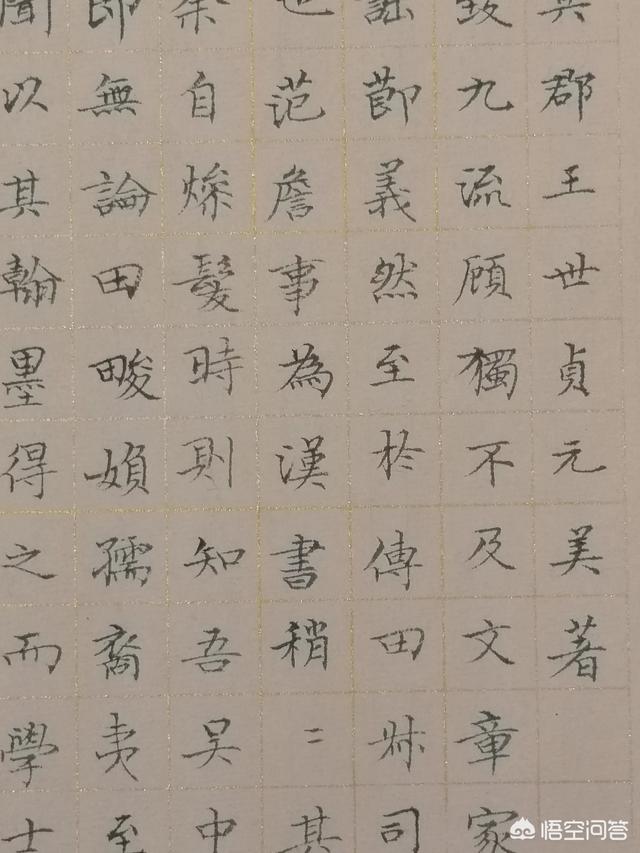 吳郡王世貞元美著
九流顧獨不及文章家
詘節義然至於傳田叔司
也范詹事為漢書稍二其
余自燥髮時則知吾吳中
即無論田畯嬾孺裔夷至
聞以其翰墨得之而學士
悟空问答